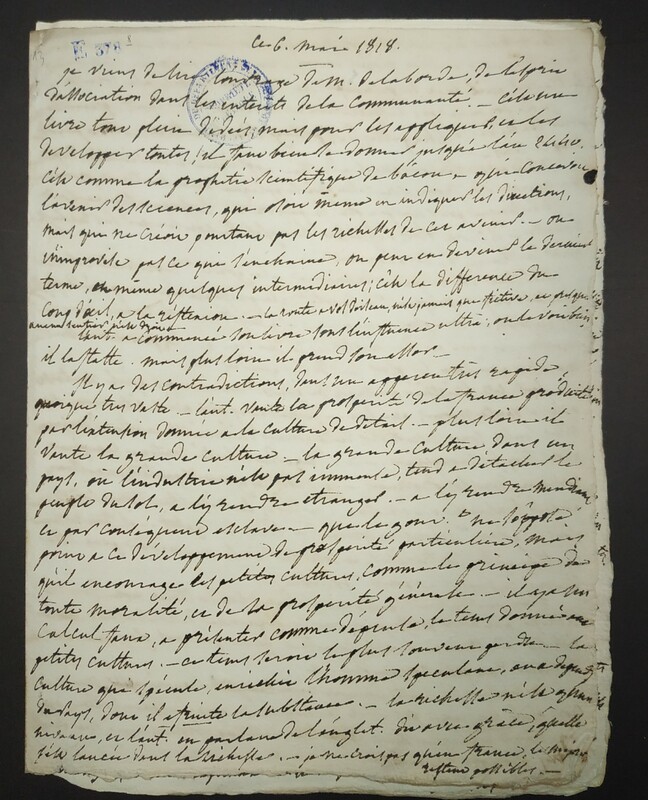 E 378
ce 6. mars 1818.
je viens de lire l'ouvrage de M. de laborde, de l'esprit
d'association dans les interêts de la communauté. — c'est un
livre tout plein d'idées, mais pour les appliquer, et les
developper toutes, il faut bien se donner jusqu'à l'an 2440.
c'est comme la prophetie scientifique de bacon, qui
l'avenir des sciences, qui osoit même en indiquer les directions,
mais qui ne créoit pourtant pas les richesses de cet avenir. — on
n'improvise pas ce qui s'enchaine, on peut en deviner le dernier
terme, et même quelques intermediaires; c'est la difference du
coup d'œil, a la reflexion. — la route a vol d'oiseau, n'est jamais que fictive, et presque
aucun sentier n'est droit
l'aut. a commencé son livre sous l'influence ultra; on le voit bien
il la flatte. mais plus loin il prend son essor —
Il y a des contradictions, dans un apperçu très rapide,
quoique très vaste. — l'aut. vante la prosperité de la france produite
par l'extension donnée a la culture de detail. — plus loin il
vante la grande culture — la grande culture dans un
pays, où l'industrie n'est pas immense, tend a détacher le
peuple du sol, a l'y rendre etranger. — a l'y rendre mendiant
et par conséquent esclave — que le gouv.t ne s'oppose
point a ce developpement de prosperité particulière, mais
qu'il encourage les petites cultures, comme le principe de
toute moralité, et de la prosperité générale — il y a un
calcul faux, a présenter comme dépense, le tems donné aux
petites cultures. — ce tems seroit le plus souvent perdu — la
culture que spécule, enrichit l'homme speculant, aux depens
du pays, dont il la substance — la richesse n'est qu'un
niveau, et l'aut. en parlant de l'anglet. dit avec grâce, qu'elle
s'est lancée dans la richesse — je ne crois pas qu'en france, le
possibles. —